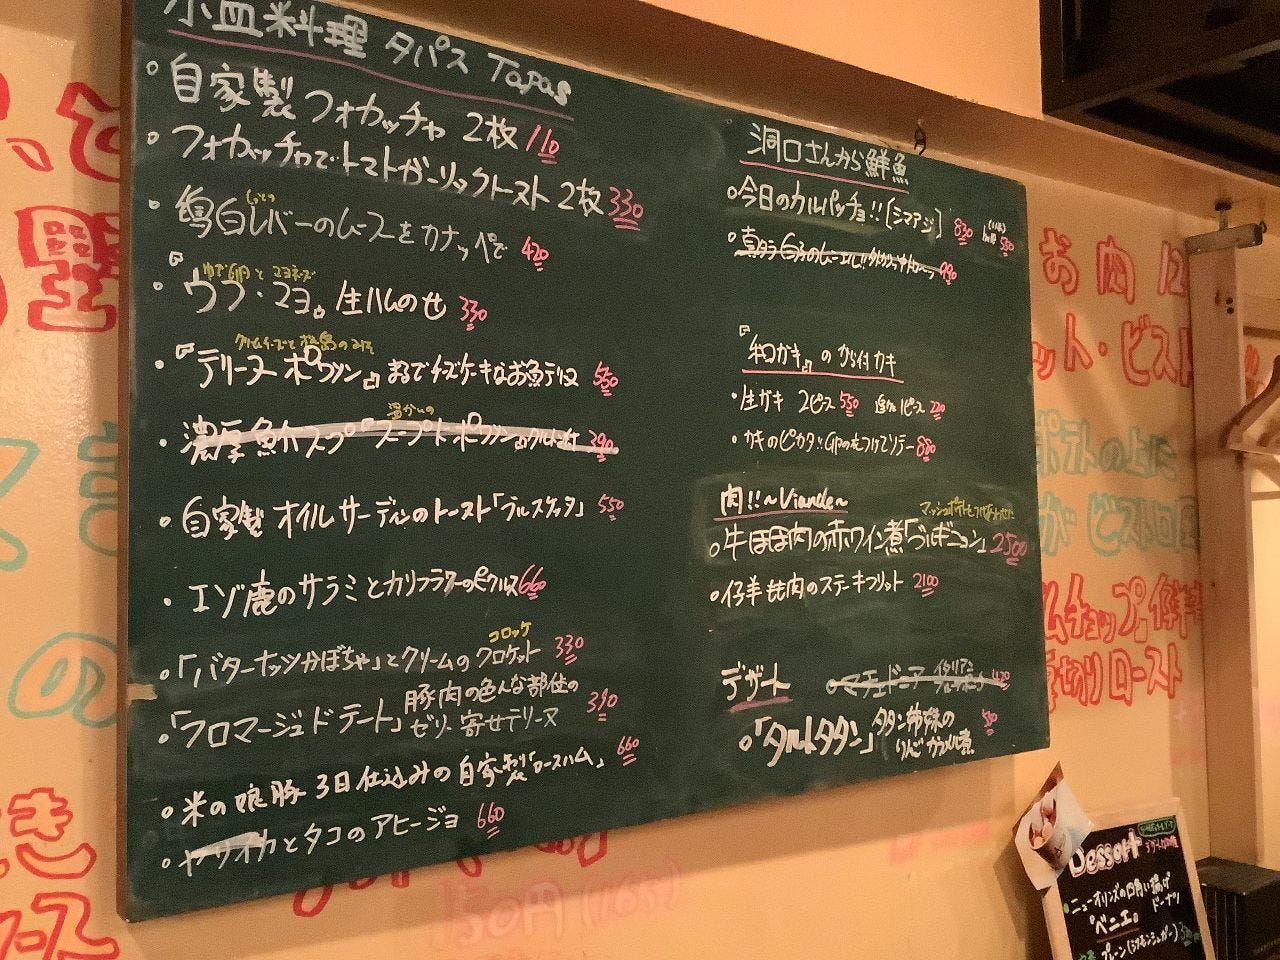 小皿料理 タパス Tapas
自家製フォカッチャ 2枚 110
フォカッチャでトマトガーリックトースト 2枚 330
しっとり
鶏白レバーのムースをカナッペで 420
ゆで卵とマヨネーズ
『ウフ・マヨ』生ハムのせ 330
クリームチーズと
『テリーヌ ポワソン』まるでチーズケーキなお魚テリーヌ 550
温かいの
濃厚魚介スープ『スープ ド ポワソン』 390
自家製オイルサーディンのトースト「ブルスケッタ」 550
エゾ鹿のサラミとカリフラワーのピクルス 660
コロッケ
「バターナッツかぼちゃ」とクリームのクロケット 330
「フロマージュ ド テート」豚肉の色んな部位の
ゼリー寄せテリーヌ 390
米の娘豚 3日仕込みの自家製「ロースハム」 660
ヤリイカとタコのアヒージョ 660
洞口さんから鮮魚
今日のカルパッチョ!!〔シマアジ〕 830 half 550
真タラ白子のムニエル!! 990
『 ガキ』のから付カキ
生ガキ 2ピース 550 追加1ピース 220
カキのピカタ!!卵の衣つけてソテー 880
肉!!~Viande~
マッシュポテト
牛ほほ肉の赤ワイン煮「ブルギニョン」 2500
仔羊 肉のステーキフリット 2100
デザート
マチェドニア イタリアン
「タルトタタン」タタン姉妹の
りんごカラメル煮 550
お肉に
ット・ビスト
ポテトの上に
が ビストロ
ムチョップ。仔羊
厚切りロースト
の
150円(165)
Dessert
ニューオリンズの四角い揚げ
ドーナツ
『ベニエ』
プレーン(シナモンシュガー)